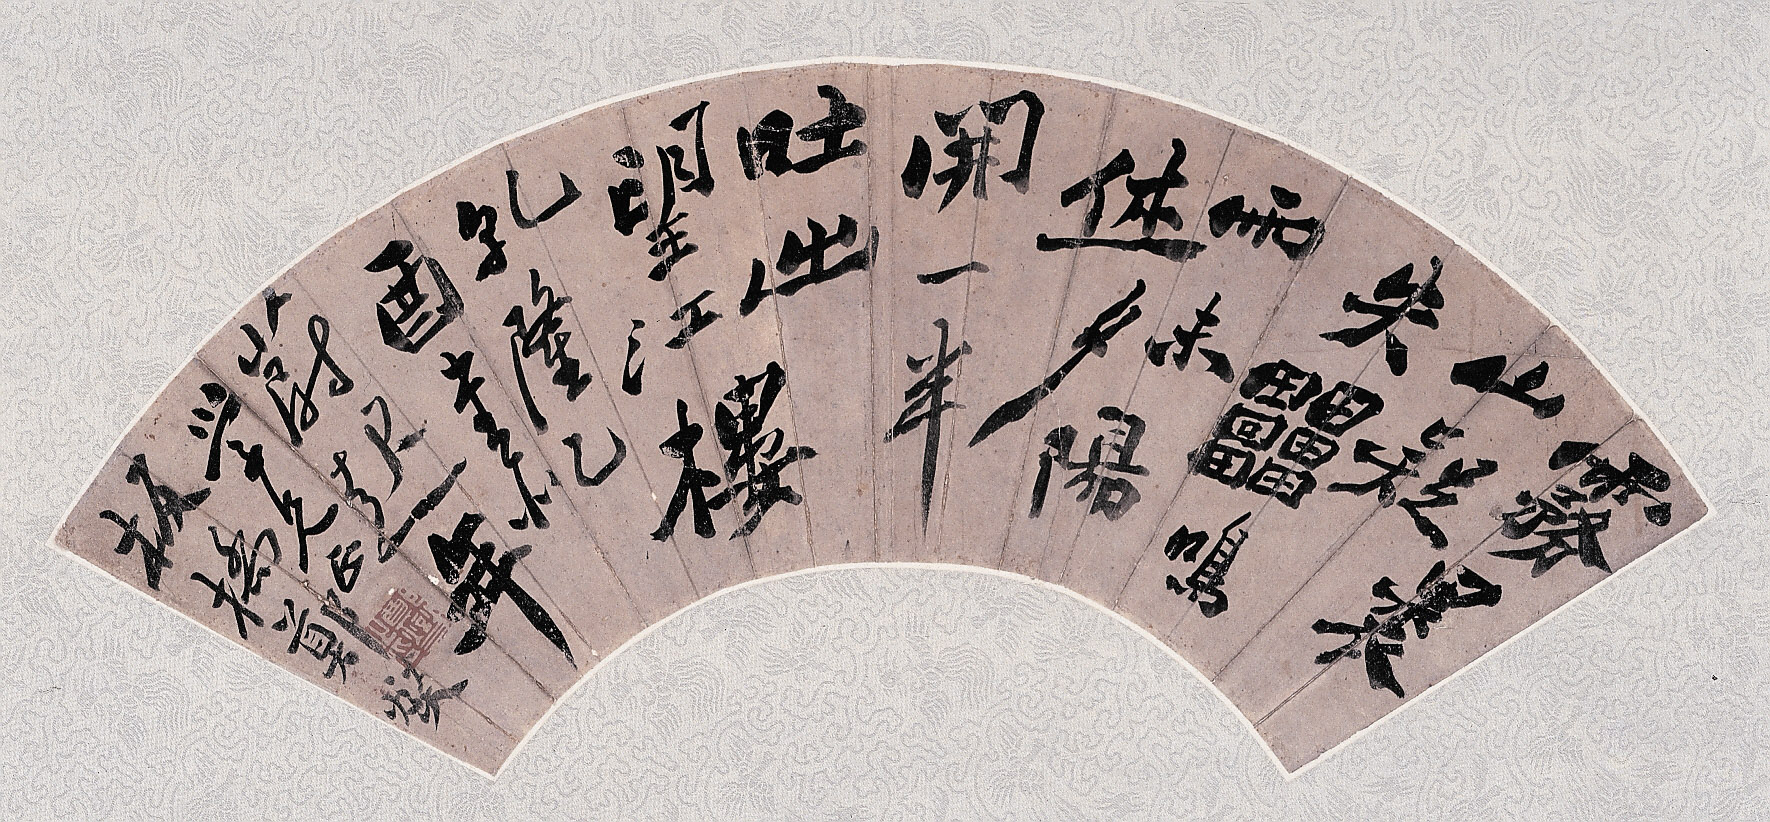 霧裹
山疑
失靁鳴
雨未
休夕陽
開一半
吐出
望江樓
乾隆乙
酉
板橋鄭燮